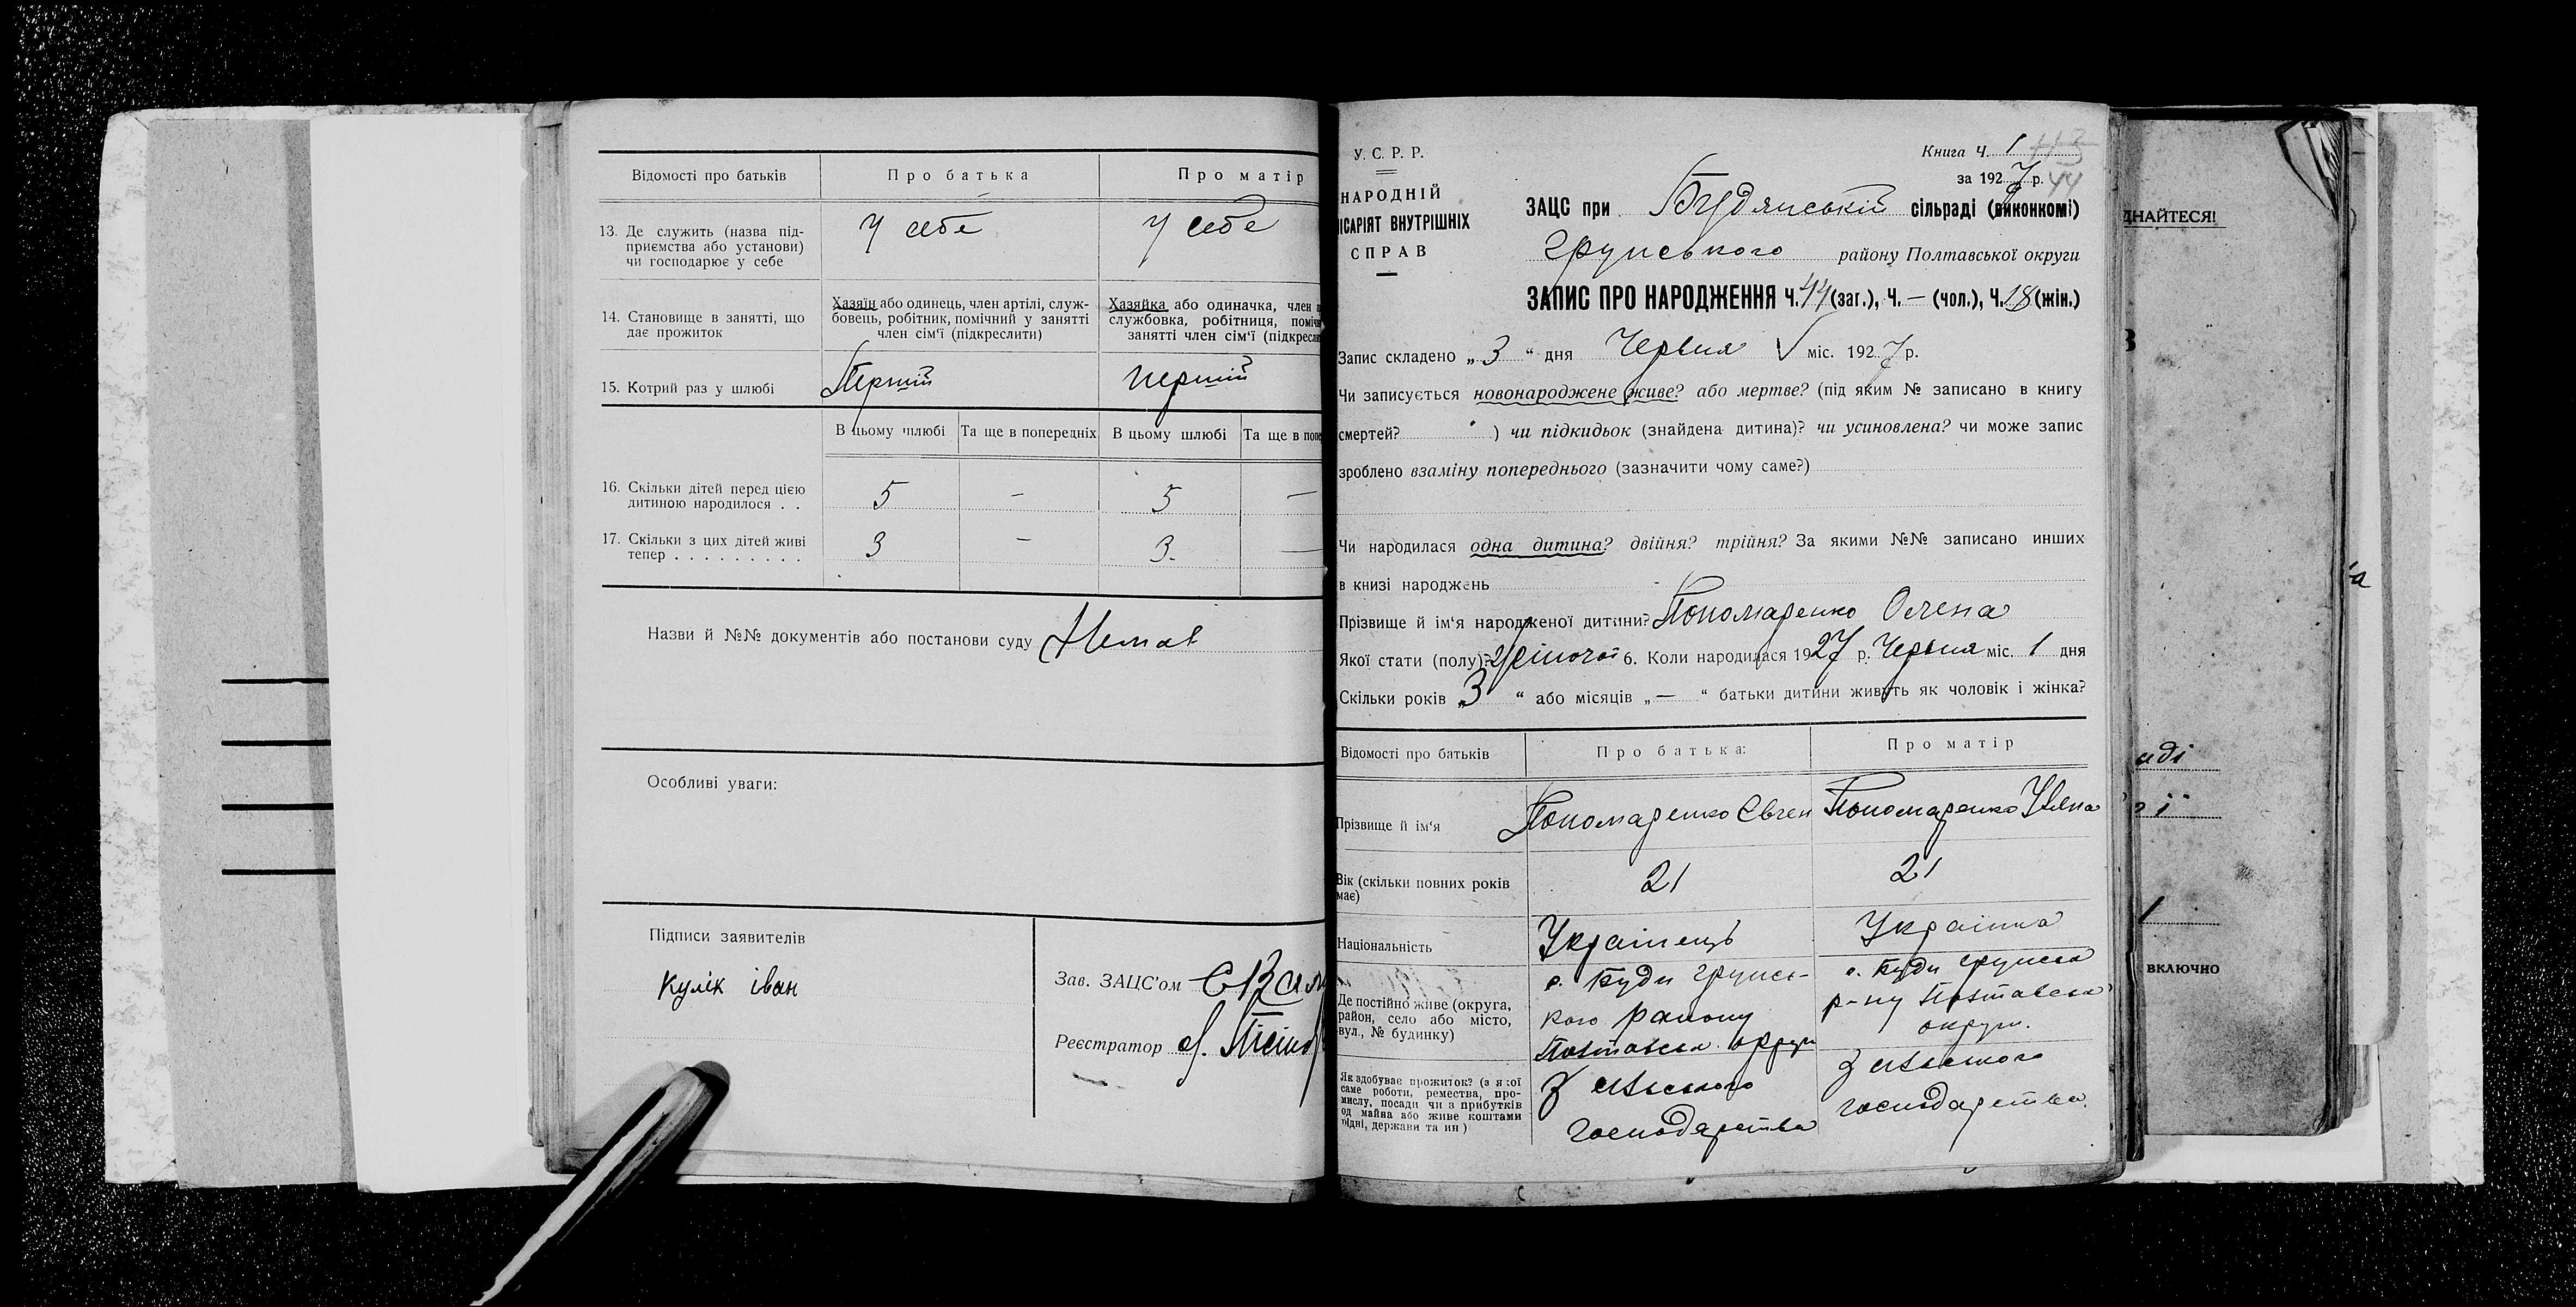 Відомості про батьків
Про батька
Про матір
13. Де служить (назва під-
приємства або установи)
чи господарює у себе
У себе
У себе
14. Становище в занятті, що
дає прожиток
Хазяїн або одинець, член артілі, служ-
бовець, робітник, помічний у занятті
член сім'ї (підкреслити)
Хазяйка або одиначка, член
службовка, робітниця, поміч
занятті член сім'ї (підкресл
15. Котрий раз у шлюбі
Перший
перший
В цьому шлюбі
Та ще в попередніх
В цьому шлюбі
Та ще в попе
16. Скільки дітей перед цією
дитиною народилося . .
5
—
5
—
17. Скільки з цих дітей живі
тепер . . . . . . . . .
3
—
3.
—
Назви й №№ документів або постанови суду Немає
Особливі уваги:
Підписи заявителів
Кулік іван
Зав. ЗАЦС'ом
Реєстратор
У. С. Р. Р.
НАРОДНІЙ
ІСАРІЯТ ВНУТРІШНІХ
СПРАВ
Книга Ч. 1
за 1927 р. 44
ЗАЦС при Будянській сільраді (виконкомі)
Грунського району Полтавської округи
ЗАПИС ПРО НАРОДЖЕННЯ Ч. 44 (заг.), Ч. — (чол.), Ч. 18 (жін.)
Запис складено „3“ дня Червня міс. 1927 р.
Чи записується новонароджене живе? або мертве? (під яким № записано в книгу
смертей? ) чи підкидьок (знайдена дитина)? чи усиновлена? чи може запис
зроблено взаміну попереднього (зазначити чому саме?)
Чи народилася одна дитина? двійня? трійня? За якими №№ записано инших
в книзі народжень
Прізвище й ім'я народженої дитини? Пономаренко Олена
Якої стати (полу)? жіночої 6. Коли народилася 1927 р. Червня міс. 1 дня
Скільки років „3“ або місяців „—“ батьки дитини живуть як чоловік і жінка?
Відомості про батьків
Про батька:
Про матір
Прізвище й ім'я
Пономаренко Євген
Пономаренко Уляна
Вік (скільки повних років
має)
21
21
Національність
Українець
Українка
Де постійно живе (округа,
район, село або місто,
вул., № будинку)
с. Буди Грунсь-
кого району
Полтавськ. округи
с. Буди Грунськ
р-ну Полтавськ
округи.
Як здобуває прожиток? (з якої
саме роботи, ремества, про-
мислу, посади чи з прибутків
од майна або живе коштами
рідні, держави та ин)
З сільського
господарства
З сільського
господарства.
ДНАЙТЕСЯ!
аді
і
1
включно